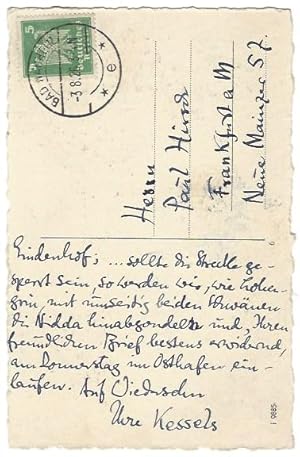 5
Deutsches Reich
BAD
-3.8.2
* e *
Herrn
Paul Hirsch
Frankfurt a M
Neue Mainzer 57.
Lindenhof; ... sollte die Strecke ge-
sperrt sein, so werden wir, wie Lohen-
grin, mit unseitig beiden Schwänen
die Nidda hinabgondeln und, Ihren
freundlichen Brief bestens erwidernd,
am Donnerstag im Osthafen ein-
laufen. Auf Wiedersehn
Ihre Kessels
6
I 0885